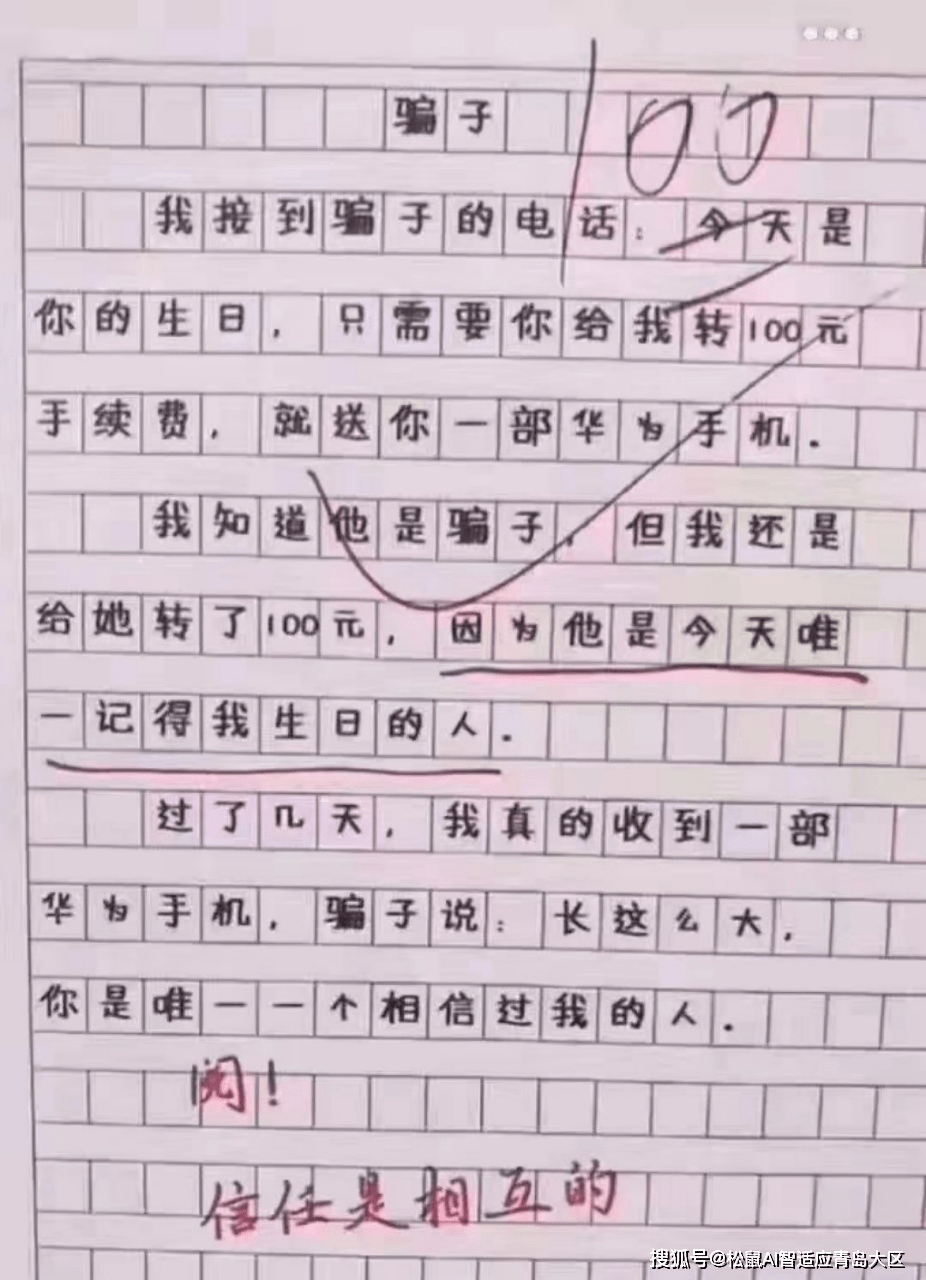 骗子
100
我接到骗子的电话：今天是
你的生日，只需要你给我转100元
手续费，就送你一部华为手机．
我知道他是骗子，但我还是
给她转了100元，因为他是今天唯
一记得我生日的人．
过了几天，我真的收到一部
华为手机，骗子说：长这么大，
你是唯一一个相信过我的人．
阅！
信任是相互的
搜狐号@松鼠AI智适应青岛大区